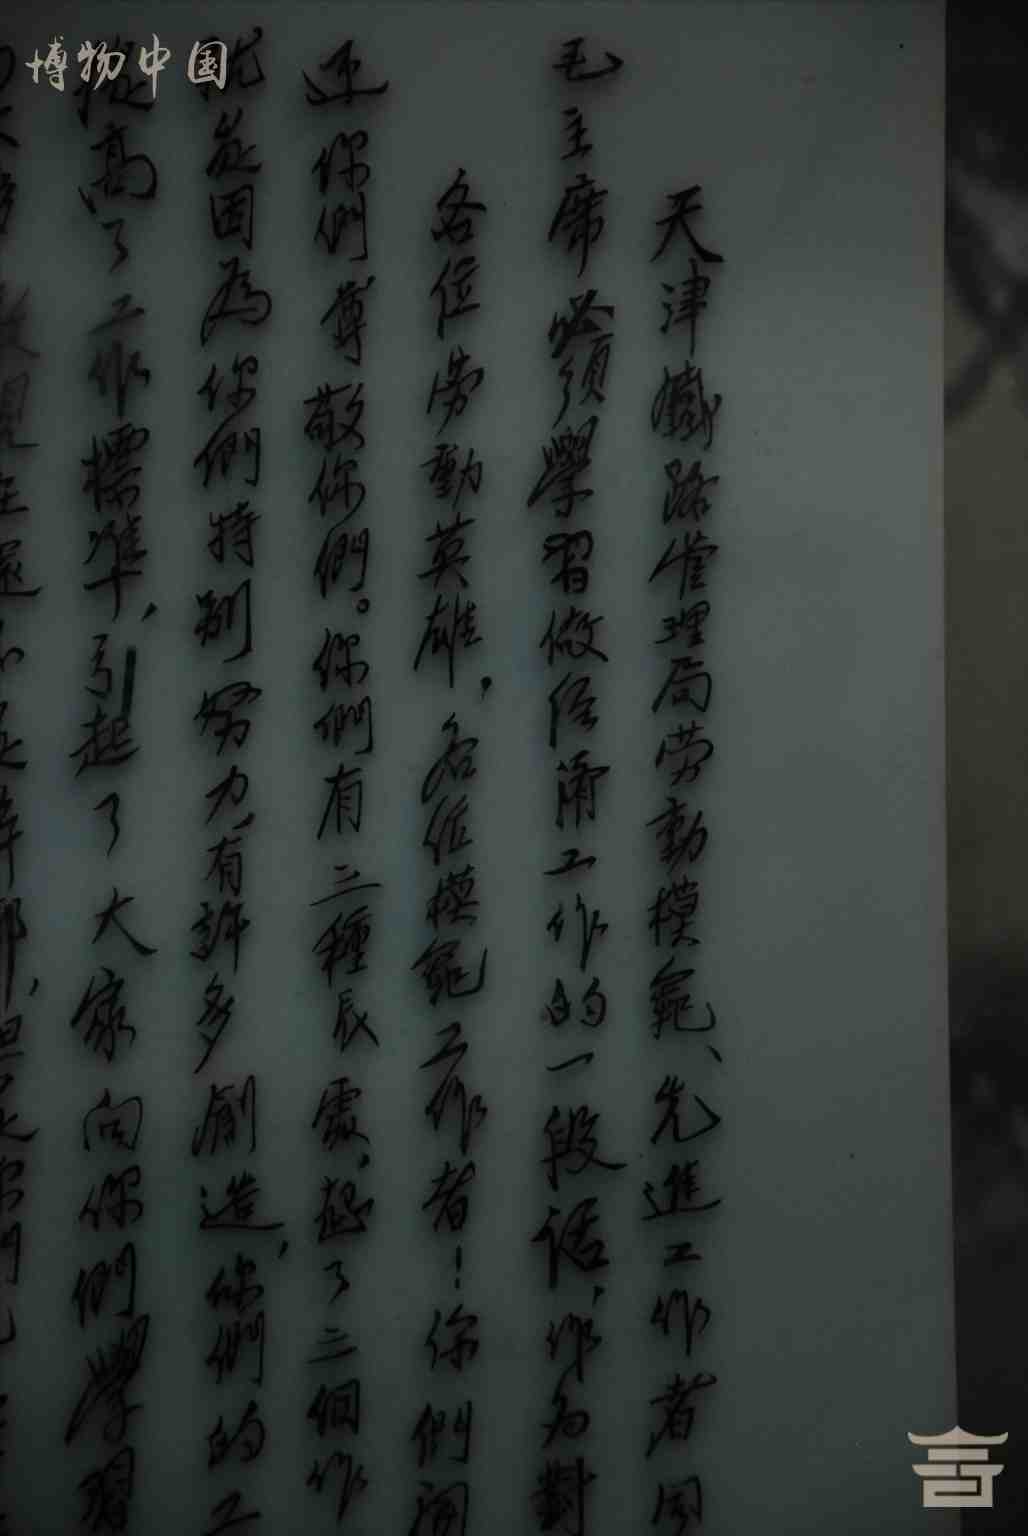 博物中国
天津鐵路管理局劳動模範、先進工作者同
毛主席必須學習做经濟工作的一段话，作为對
各位劳動英雄，各位模範工作者！你們開
你們尊敬你們。你們有三種長處，起了三個作
就是因為你們特別努力，有許多創造，你們的工
提高了工作標準，引起了大家向你們學習